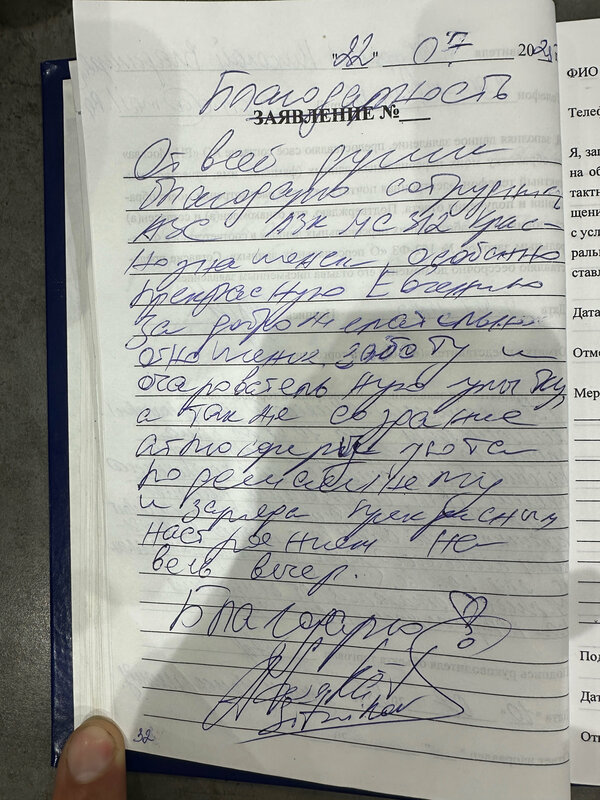 "22" 07 2024г
Благодарность
ЗАЯВЛЕНИЕ №
От всей души
благодарю сотрудника
АЗС АЗК МС 312 Крас-
нознаменск особенно
прекрасную Евгению
За доброжелательное
отношение, заботу и
очаровательную улыбку,
а также создание
атмосферы уюта
по домашнему
и заряда прекрасным
настроением на
весь вечер.
Благодарю
32
ФИО
Телеф
Я, зап
на об
тактн
щени
с усл
раль
ставл
Дата
Отмо
Мер
Под
Дат
Отв